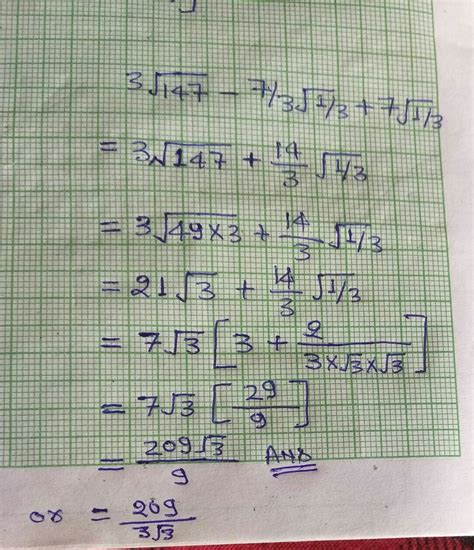 3√147 - 7/3√1/3 + 7√1/3
= 3√147 + 14/3 √1/3
= 3√49×3 + 14/3 √1/3
= 21√3 + 14/3 √1/3
= 7√3 [3 + 2/(3×√3×√3)]
= 7√3 [29/9]
= 209√3/9 Ans
or = 209/3√3